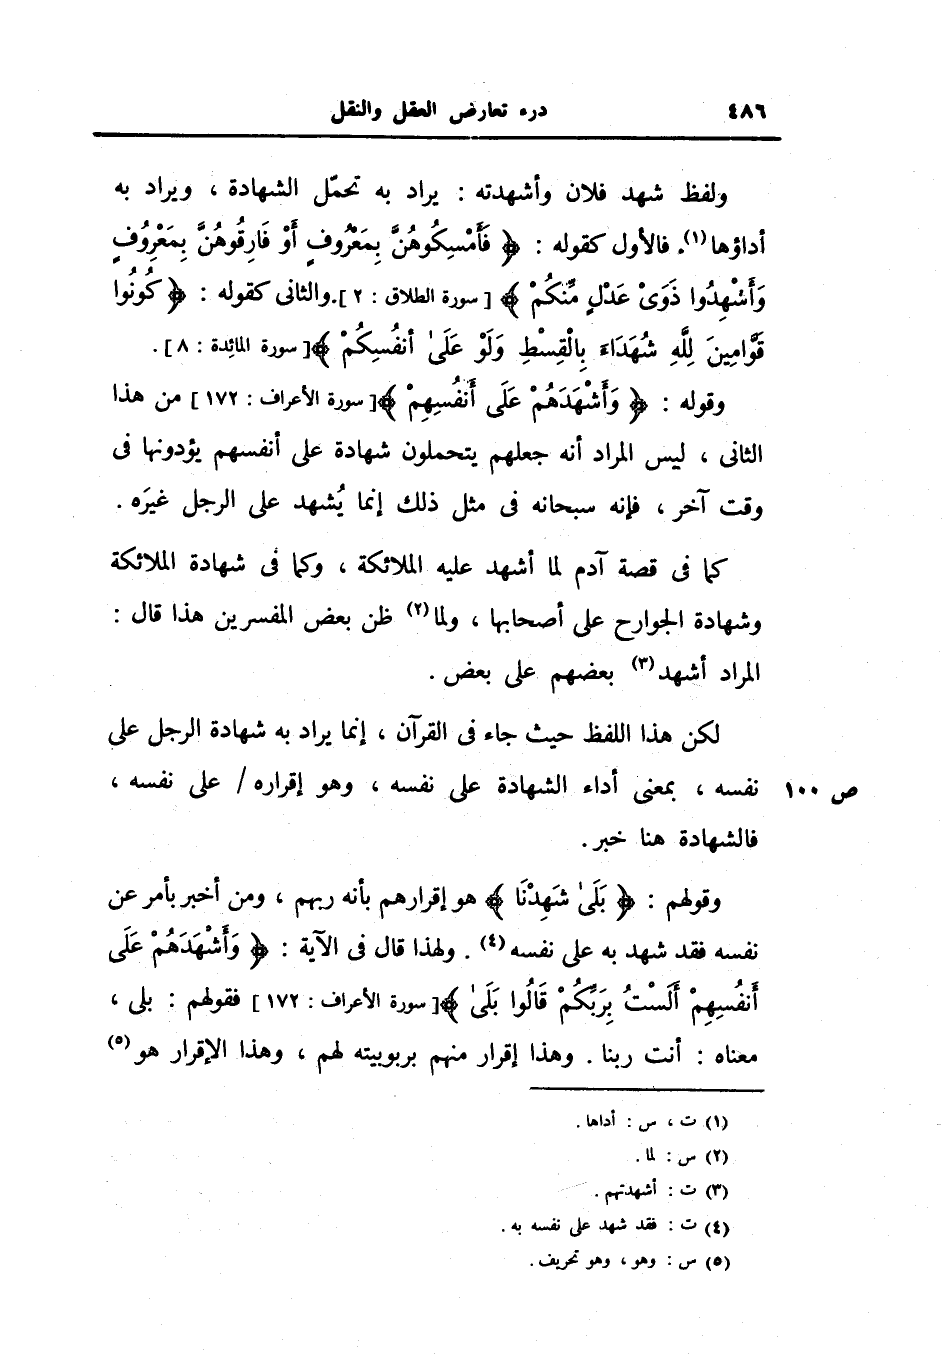 ٤٨٦ درء تعارض العقل والنقل
ولفظ شهد فلان وأشهدته : يراد به تحمّل الشهادة ، ويراد به
أداؤها(١). فالأول كقوله : ﴿ فَأَمْسِكُوهُنَّ بِمَعْرُوفٍ أَوْ فَارِقُوهُنَّ بِمَعْرُوفٍ
وَأَشْهِدُوا ذَوَىْ عَدْلٍ مِّنكُمْ ﴾ [ سورة الطلاق : ٢ ].والثانى كقوله : ﴿ كُونُوا
قَوَّامِينَ لِلَّهِ شُهَدَاءَ بِالْقِسْطِ وَلَوْ عَلَىٰ أنفُسِكُمْ ﴾[ سورة المائدة : ٨ ] .
وقوله : ﴿ وَأَشْهَدَهُمْ عَلَى أَنْفُسِهِمْ ﴾[ سورة الأعراف : ١٧٢ ] من هذا
الثانى ، ليس المراد أنه جعلهم يتحملون شهادة على أنفسهم يؤدونها فى
وقت آخر ، فإنه سبحانه فى مثل ذلك إنما يُشهد على الرجل غيرَه .
كما فى قصة آدم لما أشهد عليه الملائكة ، وكما فى شهادة الملائكة
وشهادة الجوارح على أصحابها ، ولما(٢) ظن بعض المفسرين هذا قال :
المراد أشهد(٣) بعضهم على بعض .
لكن هذا اللفظ حيث جاء فى القرآن ، إنما يراد به شهادة الرجل على
ص ١٠٠ نفسه ، بمعنى أداء الشهادة على نفسه ، وهو إقراره / على نفسه ،
فالشهادة هنا خبر .
وقولهم : ﴿ بَلَىٰ شَهِدْنَا ﴾ هو إقرارهم بأنه ربهم ، ومن أخبر بأمر عن
نفسه فقد شهد به على نفسه(٤) . ولهذا قال فى الآية : ﴿ وَأَشْهَدَهُمْ عَلَى
أَنفُسِهِمْ أَلَسْتُ بِرَبِّكُمْ قَالُوا بَلَىٰ ﴾[ سورة الأعراف : ١٧٢ ] فقولهم : بلى ،
معناه : أنت ربنا . وهذا إقرار منهم بربوبيته لهم ، وهذا الإقرار هو(٥)
(١) ت ، س : أداها .
(٢) س : لما .
(٣) ت : أشهدتهم .
(٤) ت : فقد شهد على نفسه به .
(٥) س : وهو ، وهو تحريف .